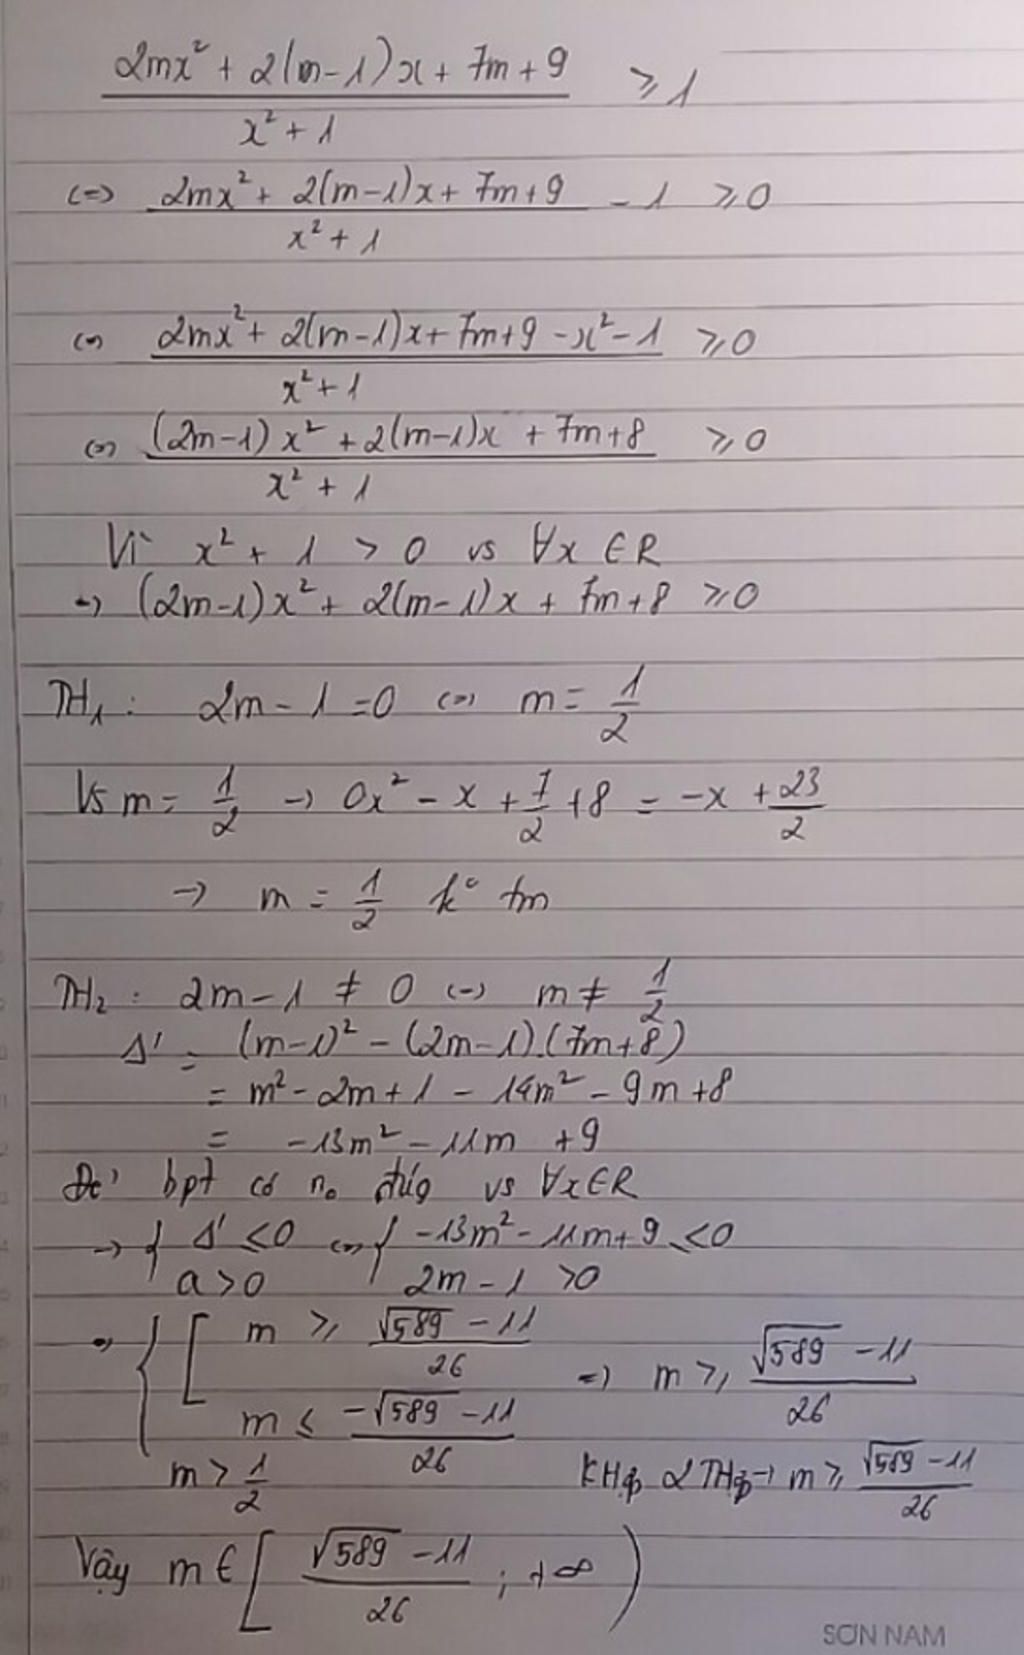 (2mx² + 2(m-1)x + 7m + 9)/(x² + 1) ⩾ 1
(=) (2mx² + 2(m-1)x + 7m+9)/(x² + 1) - 1 ⩾ 0
(=) (2mx² + 2(m-1)x + 7m+9 - x² - 1)/(x² + 1) ⩾ 0
(=) ((2m-1)x² + 2(m-1)x + 7m+8)/(x² + 1) ⩾ 0
Vì x² + 1 > 0 vs ∀x ∈ R
→ (2m-1)x² + 2(m-1)x + 7m+8 ⩾ 0
TH₁ : 2m - 1 = 0 (=) m = 1/2
Vs m = 1/2 → 0x² - x + 7/2 + 8 = -x + 23/2
→ m = 1/2 k° tm
TH₂ : 2m - 1 ≠ 0 (=) m ≠ 1/2
Δ' = (m-1)² - (2m-1).(7m+8)
= m² - 2m + 1 - 14m² - 9m + 8
= -13m² - 11m + 9
Để bpt có n₀ đúg vs ∀x∈R
→ { Δ' ⩽ 0 (=) { -13m² - 11m + 9 ⩽ 0
a > 0 2m - 1 > 0
→ { [ m ⩾ (√589 - 11)/26 =) m ⩾ (√589 - 11)/26
m ⩽ (-√589 - 11)/26
m > 1/2 KH 2 TH → m ⩾ (√589 - 11)/26
Vậy m ∈ [ (√589 - 11)/26 ; +∞ )
SƠN NAM